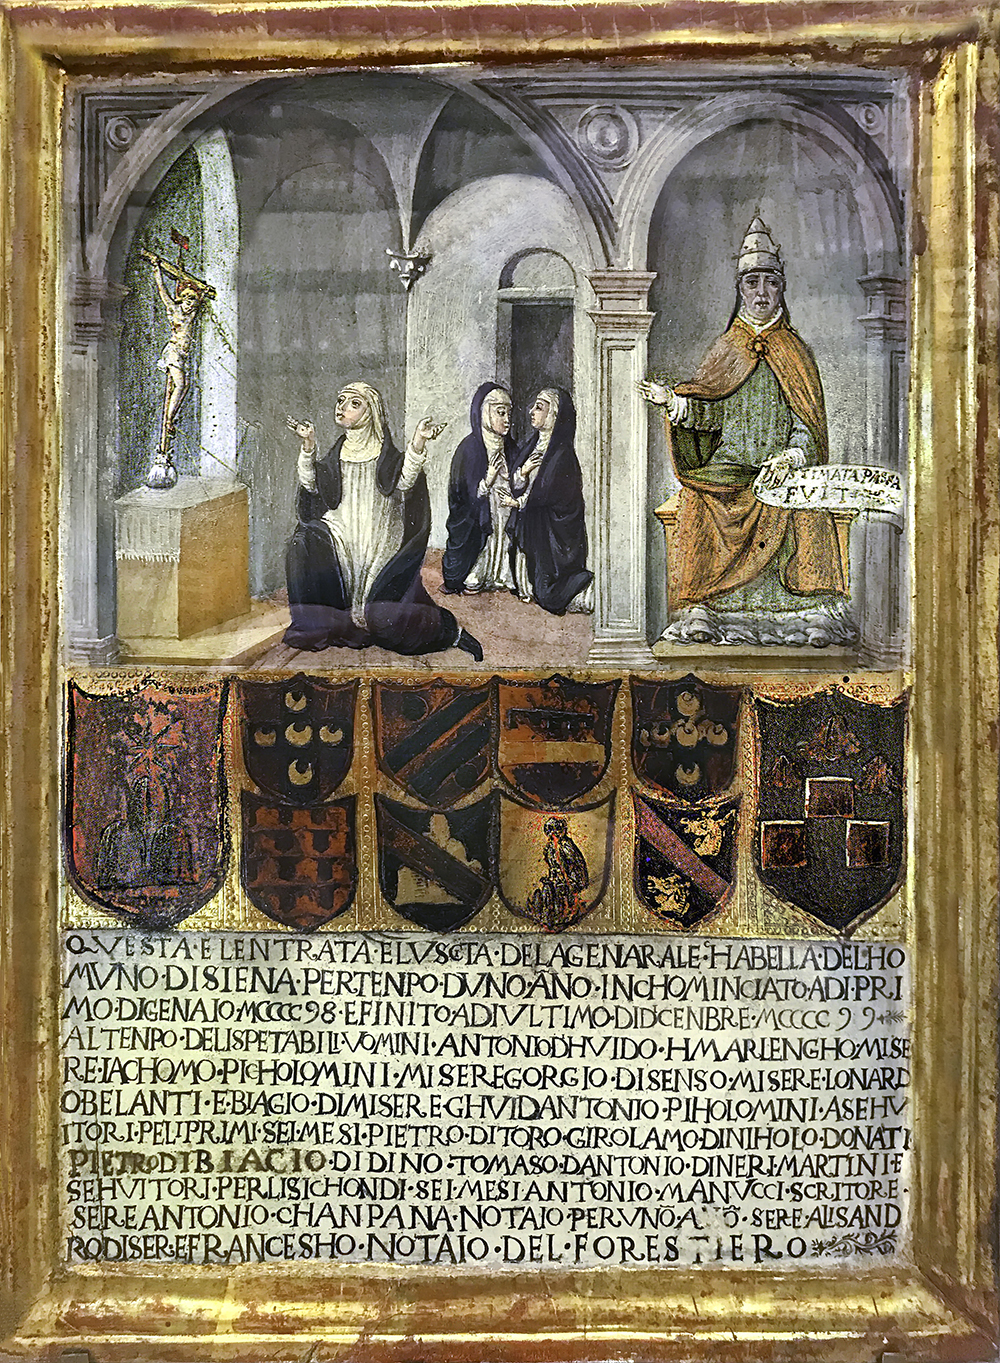 STIMATA PASSA
FUIT
QVESTA·E LENTRATA·ELVSCITA·DELAGENARALE·HABELLA·DELHO
MVNO·DISIENA·PERTENPO·DVNO·ĀNO·INCHOMINCIATO·ADI·PRI
MO·DIGENAIO·MCCCC98·EFINITO·ADIVLTIMO·DIDCENBRE·MCCCC99
ALTENPO·DELISPETABILI·VOMINI·ANTONIODHVIDO·HMARLENGHO·MISE
RE·IACHOMO·PICHOLOMINI·MISEREGORGIO·DISENSO·MISERE·LONARD
OBELANTI·E·BIAGIO·DIMISEREGHVIDANTONIO·PIHOLOMINI·ASEHV
ITORI·PELIPRIMI·SEI·MESI·PIETRO·DITORO·GIROLAMO·DINIHOLO·DONATI
PIETRODIBIACIO·DIDINO·TOMASO·DANTONIO·DINERI·MARTINI·E
SEHVITORI·PERLISICHONDI·SEI·MESI·ANTONIO·MANVCCI·SCRITORE·
SEREANTONIO·CHANPANA·NOTAIO·PERVNŌ·A Ō·SERE·ALISAND
RODISEREFRANCESHO·NOTAIO·DEL·FORESTIERO